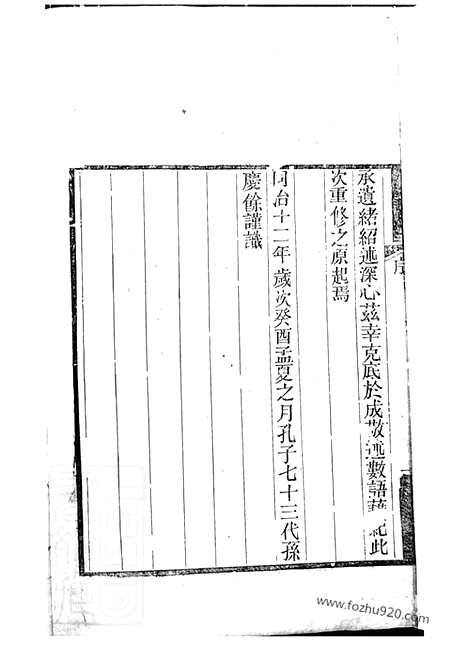 承遺緒紹述深心茲幸克底於成敬述數語藉紀此
次重修之原起焉
同治十二年歲次癸酉孟夏之月孔子七十三代孫
慶餘謹識
序
www.fozhu920.com